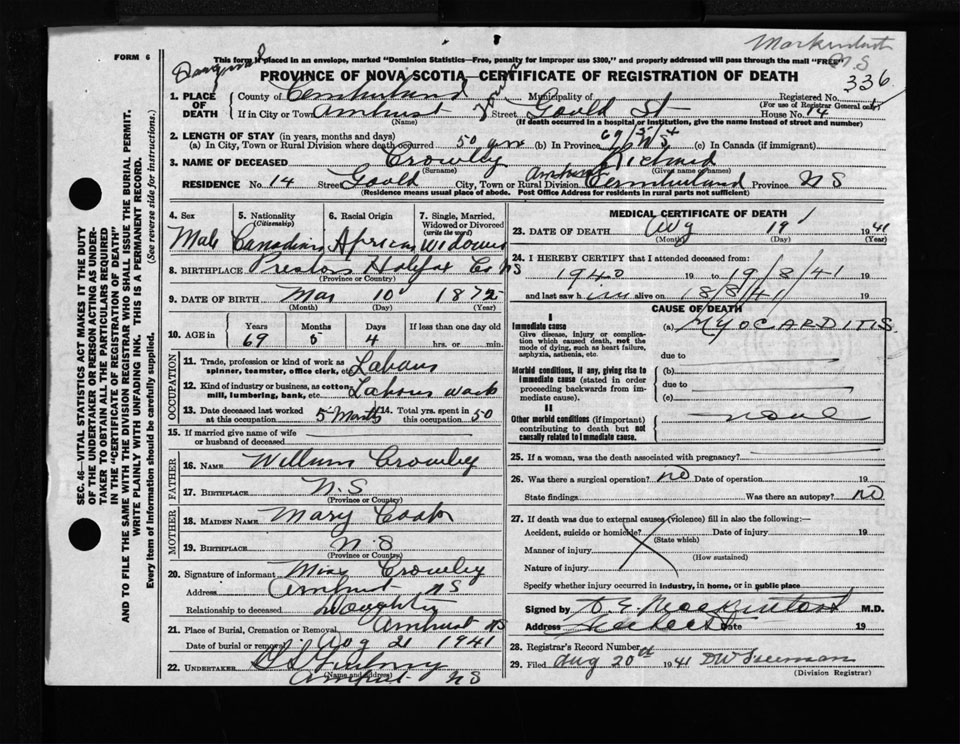 FORM 6
Mackintosh
N S
336
This form if placed in an envelope, marked "Dominion Statistics—Free, penalty for improper use $300," and properly addressed will pass through the mail "FREE"
PROVINCE OF NOVA SCOTIA—CERTIFICATE OF REGISTRATION OF DEATH
1. PLACE OF DEATH
County of Cumberland Municipality of Registered No.
(For use of Registrar General only)
If in City or Town Amherst Street Gould St House No. 14
(Name) (If death occurred in a hospital or institution, give the name instead of street and number)
2. LENGTH OF STAY (in years, months and days)
(a) In City, Town or Rural Division where death occurred 50 yrs (b) In Province (c) In Canada (if immigrant)
3. NAME OF DECEASED Crowley Richard
(Surname) (Given name or names)
RESIDENCE No. 14 Street Gould City, Town or Rural Division Amherst Cumberland Province NS
(Residence means usual place of abode. Post Office Address for residents in rural parts not sufficient)
4. Sex Male
5. Nationality (Citizenship) Canadian
6. Racial Origin African
7. Single, Married, Widowed or Divorced (write the word) Widowed
8. BIRTHPLACE Preston Halifax Co NS
(Province or Country)
9. DATE OF BIRTH Mar 10 1872
(Month) (Day) (Year)
10. AGE in Years 69 Months 5 Days 4 If less than one day old hrs. or min.
OCCUPATION
11. Trade, profession or kind of work as spinner, teamster, office clerk, etc.
12. Kind of industry or business, as cotton mill, lumbering, bank, etc. Labour work
13. Date deceased last worked at this occupation 5 Months 14. Total yrs. spent in this occupation 50
15. If married give name of wife or husband of deceased
FATHER
16. NAME William Crowley
17. BIRTHPLACE N.S
(Province or Country)
MOTHER
18. MAIDEN NAME Mary Cook
19. BIRTHPLACE N.S
(Province or Country)
20. Signature of informant Crowley
Address Amherst NS
Relationship to deceased Daughter
21. Place of Burial, Cremation or Removal Amherst NS
Date of burial or removal Aug 21 1941
22. UNDERTAKER
(Name and address)
Amherst NS
MEDICAL CERTIFICATE OF DEATH
23. DATE OF DEATH Aug 19 1941
(Month) (Day) (Year)
24. I HEREBY CERTIFY that I attended deceased from:
1940 19 to 19/8/41 19
and last saw him alive on 18/8/41 19
CAUSE OF DEATH
I
Immediate cause
Give disease, injury or complication which caused death, not the mode of dying, such as heart failure, asphyxia, asthenia, etc.
(a) MYOCARDITIS
due to
Morbid conditions, if any, giving rise to immediate cause (stated in order proceeding backwards from immediate cause).
(b)
due to
(c)
II
Other morbid conditions (if important) contributing to death but not causally related to immediate cause.
none
25. If a woman, was the death associated with pregnancy?
26. Was there a surgical operation? NO Date of operation 19
State findings Was there an autopsy? NO
27. If death was due to external causes (violence) fill in also the following:—
Accident, suicide or homicide? Date of injury 19
(State which)
Manner of injury
(How sustained)
Nature of injury
Specify whether injury occurred in industry, in home, or in public place
Signed by Mackintosh M.D.
Address Date 19
28. Registrar's Record Number
29. Filed Aug 20th 1941 DW Freeman
(Division Registrar)
SEC. 46—VITAL STATISTICS ACT MAKES IT THE DUTY
OF THE UNDERTAKER OR PERSON ACTING AS UNDER-
TAKER TO OBTAIN ALL THE PARTICULARS REQUIRED
IN THE "CERTIFICATE OF REGISTRATION OF DEATH"
AND TO FILE THE SAME WITH THE DIVISION REGISTRAR WHO SHALL ISSUE THE BURIAL PERMIT.
WRITE PLAINLY WITH UNFADING INK. THIS IS A PERMANENT RECORD.
Every item of information should be carefully supplied. (See reverse side for instructions.)